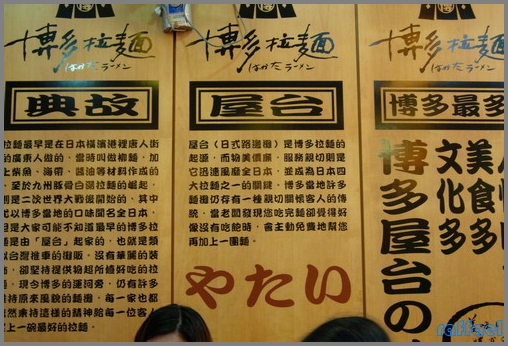 博多拉麵
はかたラーメン
典故
拉麵最早是在日本橫濱港裡唐人街
的廣東人做的，當時叫做柳麵，加
上柴魚、海帶、醬油等材料作成的
至於九州豚骨白湯拉麵的崛起，
則是二次世界大戰後開始的，其中
式以博多當地的口味聞名全日本，
但是大家可能不知道最早的博多拉
麵是由「屋台」起家的，也就是類
以台灣推車的攤販，沒有華麗的裝
飾，卻堅持提供物超所值好吃的拉
麵，現今博多的運河旁，仍有許多
持原來風貌的麵攤，每一家也都
然秉持這樣的精神給每一位客人
上一碗最好的拉麵。
博多拉麵
はかたラーメン
屋台
屋台（日式路邊攤）是博多拉麵的
起源，而物美價廉、服務親切則是
它迅速風靡全日本，並成為日本四
大拉麵之一的關鍵，博多當地許多
麵攤仍存有一種親切關懷客人的傳
統，當老闆發現您吃完麵卻覺得好
像沒有吃飽時，會主動免費地幫您
再加上一團麵。
やたい
博多拉麵
はかたラーメン
博多最多
美食多
文化多
博多屋台の